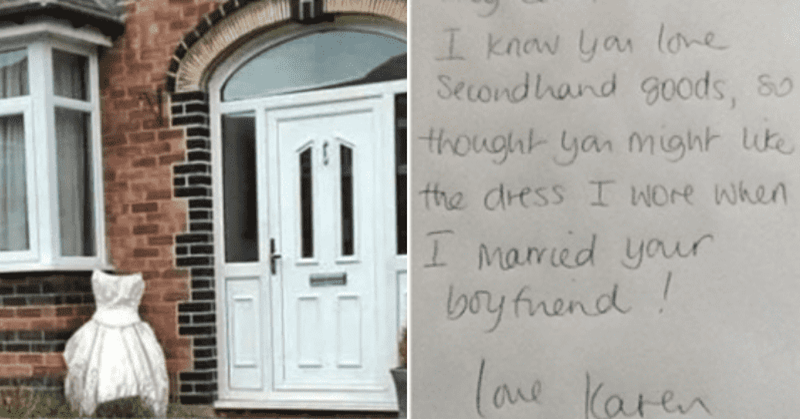 I know you love
Secondhand goods, so
thought you might like
the dress I wore when
I married your
boyfriend!
love Karen